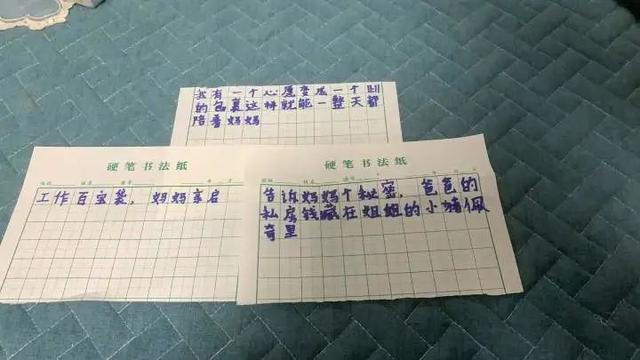 我有一个心愿变成一个
的包裹这样就能一整天都
陪着妈妈
硬笔书法纸
工作百宝袋，妈妈亲启
硬笔书法纸
告诉妈妈个秘密，爸爸的
私房钱藏在姐姐的小猪佩
奇里